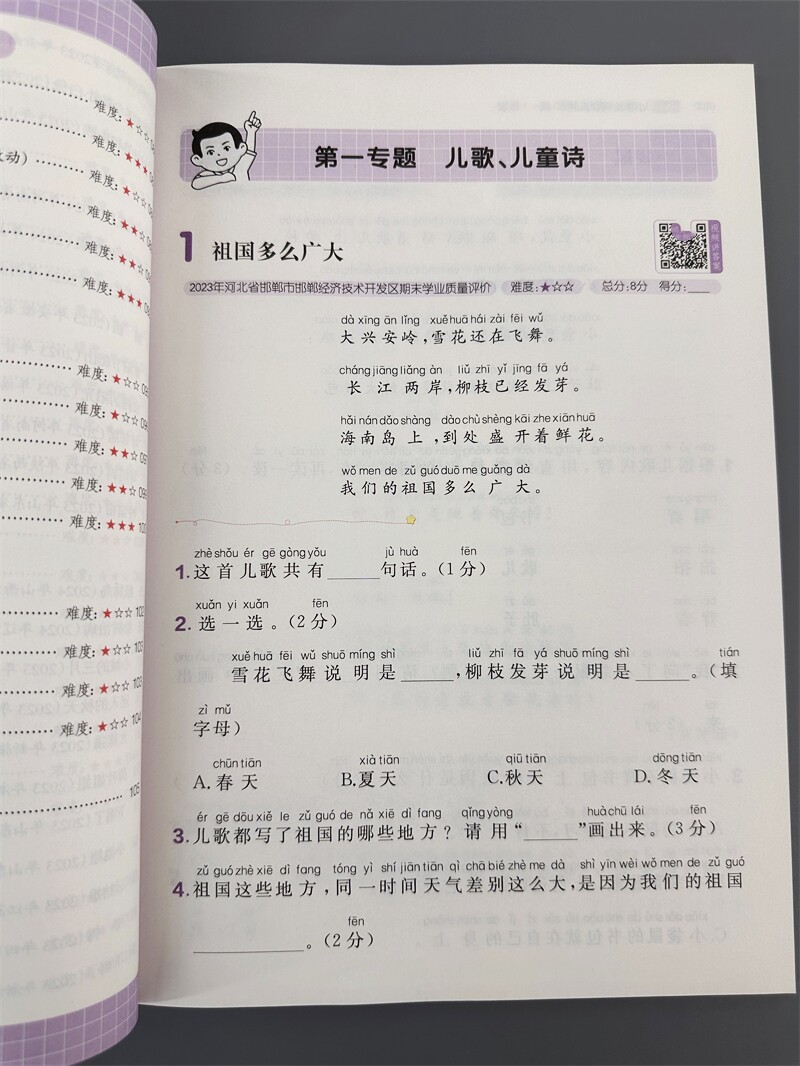 难度:★☆☆
难度:★★★
动)
难度:★☆☆
难度:★★☆
难度:★★☆
难度:★★★
难度:★☆☆
难度:★☆☆
难度:★★☆
难度:★★☆
难度:★★★
难度:★☆☆ 102
难度:★☆☆ 103
难度:★☆☆ 103
难度:★☆☆ 104
105
第一专题 儿歌、儿童诗
1 祖国多么广大
视频讲答案
2023年河北省邯郸市邯郸经济技术开发区期末学业质量评价 难度:★☆☆ 总分:8分 得分:___
dà xīng ān lǐng xuě huā hái zài fēi wǔ
大兴安岭,雪花还在飞舞。
cháng jiāng liǎng àn liǔ zhī yǐ jīng fā yá
长江两岸,柳枝已经发芽。
hǎi nán dǎo shàng dào chù shèng kāi zhe xiān huā
海南岛上,到处盛开着鲜花。
wǒ men de zǔ guó duō me guǎng dà
我们的祖国多么广大。
zhè shǒu ér gē gòng yǒu jù huà fēn
1.这首儿歌共有______句话。(1分)
xuǎn yi xuǎn fēn
2.选一选。(2分)
xuě huā fēi wǔ shuō míng shì liǔ zhī fā yá shuō míng shì tián
雪花飞舞说明是______,柳枝发芽说明是______。(填
zì mǔ
字母)
chūn tiān xià tiān qiū tiān dōng tiān
A.春天 B.夏天 C.秋天 D.冬天
ér gē dōu xiě le zǔ guó de nǎ xiē dì fang qǐng yòng huà chū lái fēn
3.儿歌都写了祖国的哪些地方?请用“______”画出来。(3分)
zǔ guó zhè xiē dì fang tóng yì shí jiān tiān qì chā bié zhè me dà shì yīn wèi wǒ men de zǔ guó
4.祖国这些地方,同一时间天气差别这么大,是因为我们的祖国
fēn
____________。(2分)